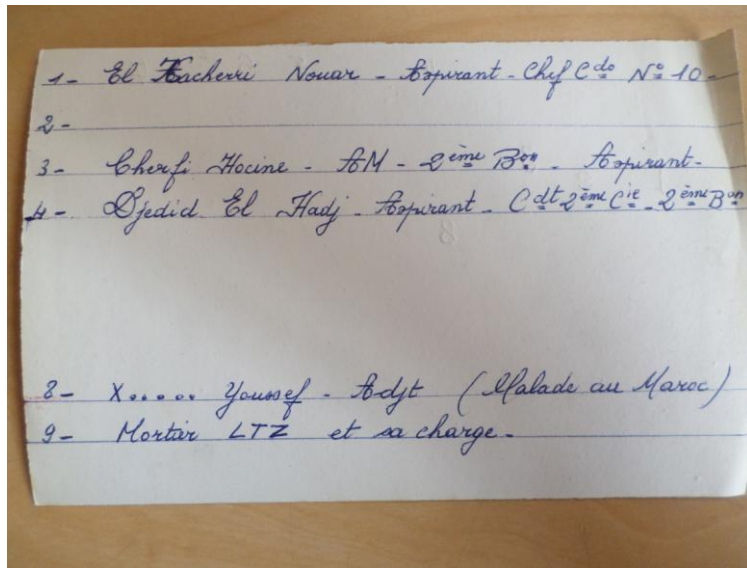 1- El Hacherri Nouar - Aspirant - Chef Cdo No 10-
2-
3- Cherfi Hocine - AM - 2ème Bon - Aspirant-
4- Djedid El Hadj - Aspirant - Cdt 2ème Cie - 2ème Bon
8- X..... Youssef - Adjt (Malade au Maroc)
9- Mortier LTZ et sa charge-